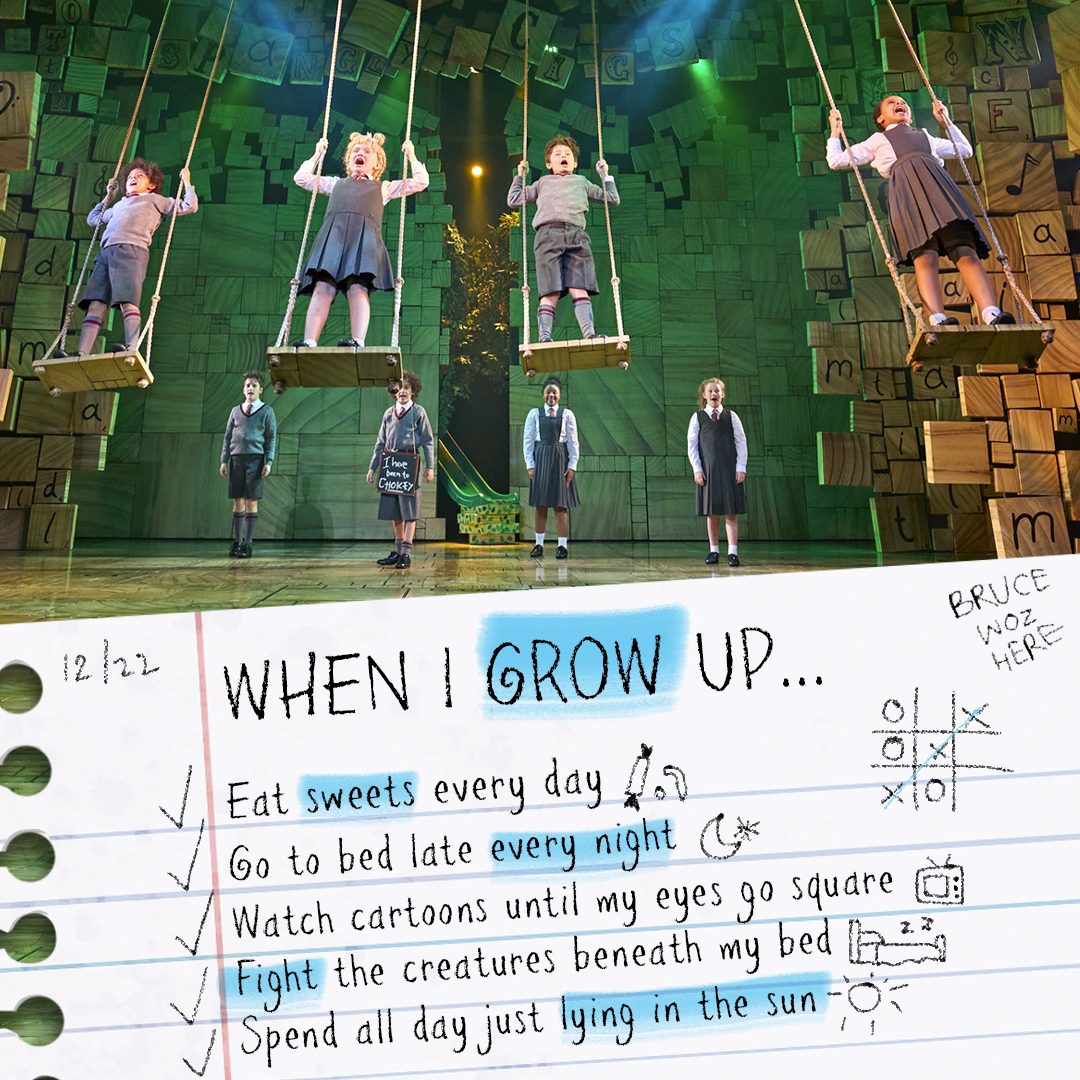 I have
been to
CHOKEY
BRUCE
WOZ
HERE
12/22
WHEN I GROW UP...
Eat sweets every day
Go to bed late every night
Watch cartoons until my eyes go square
z z z
Fight the creatures beneath my bed
Spend all day just lying in the sun
O X
O X
X O